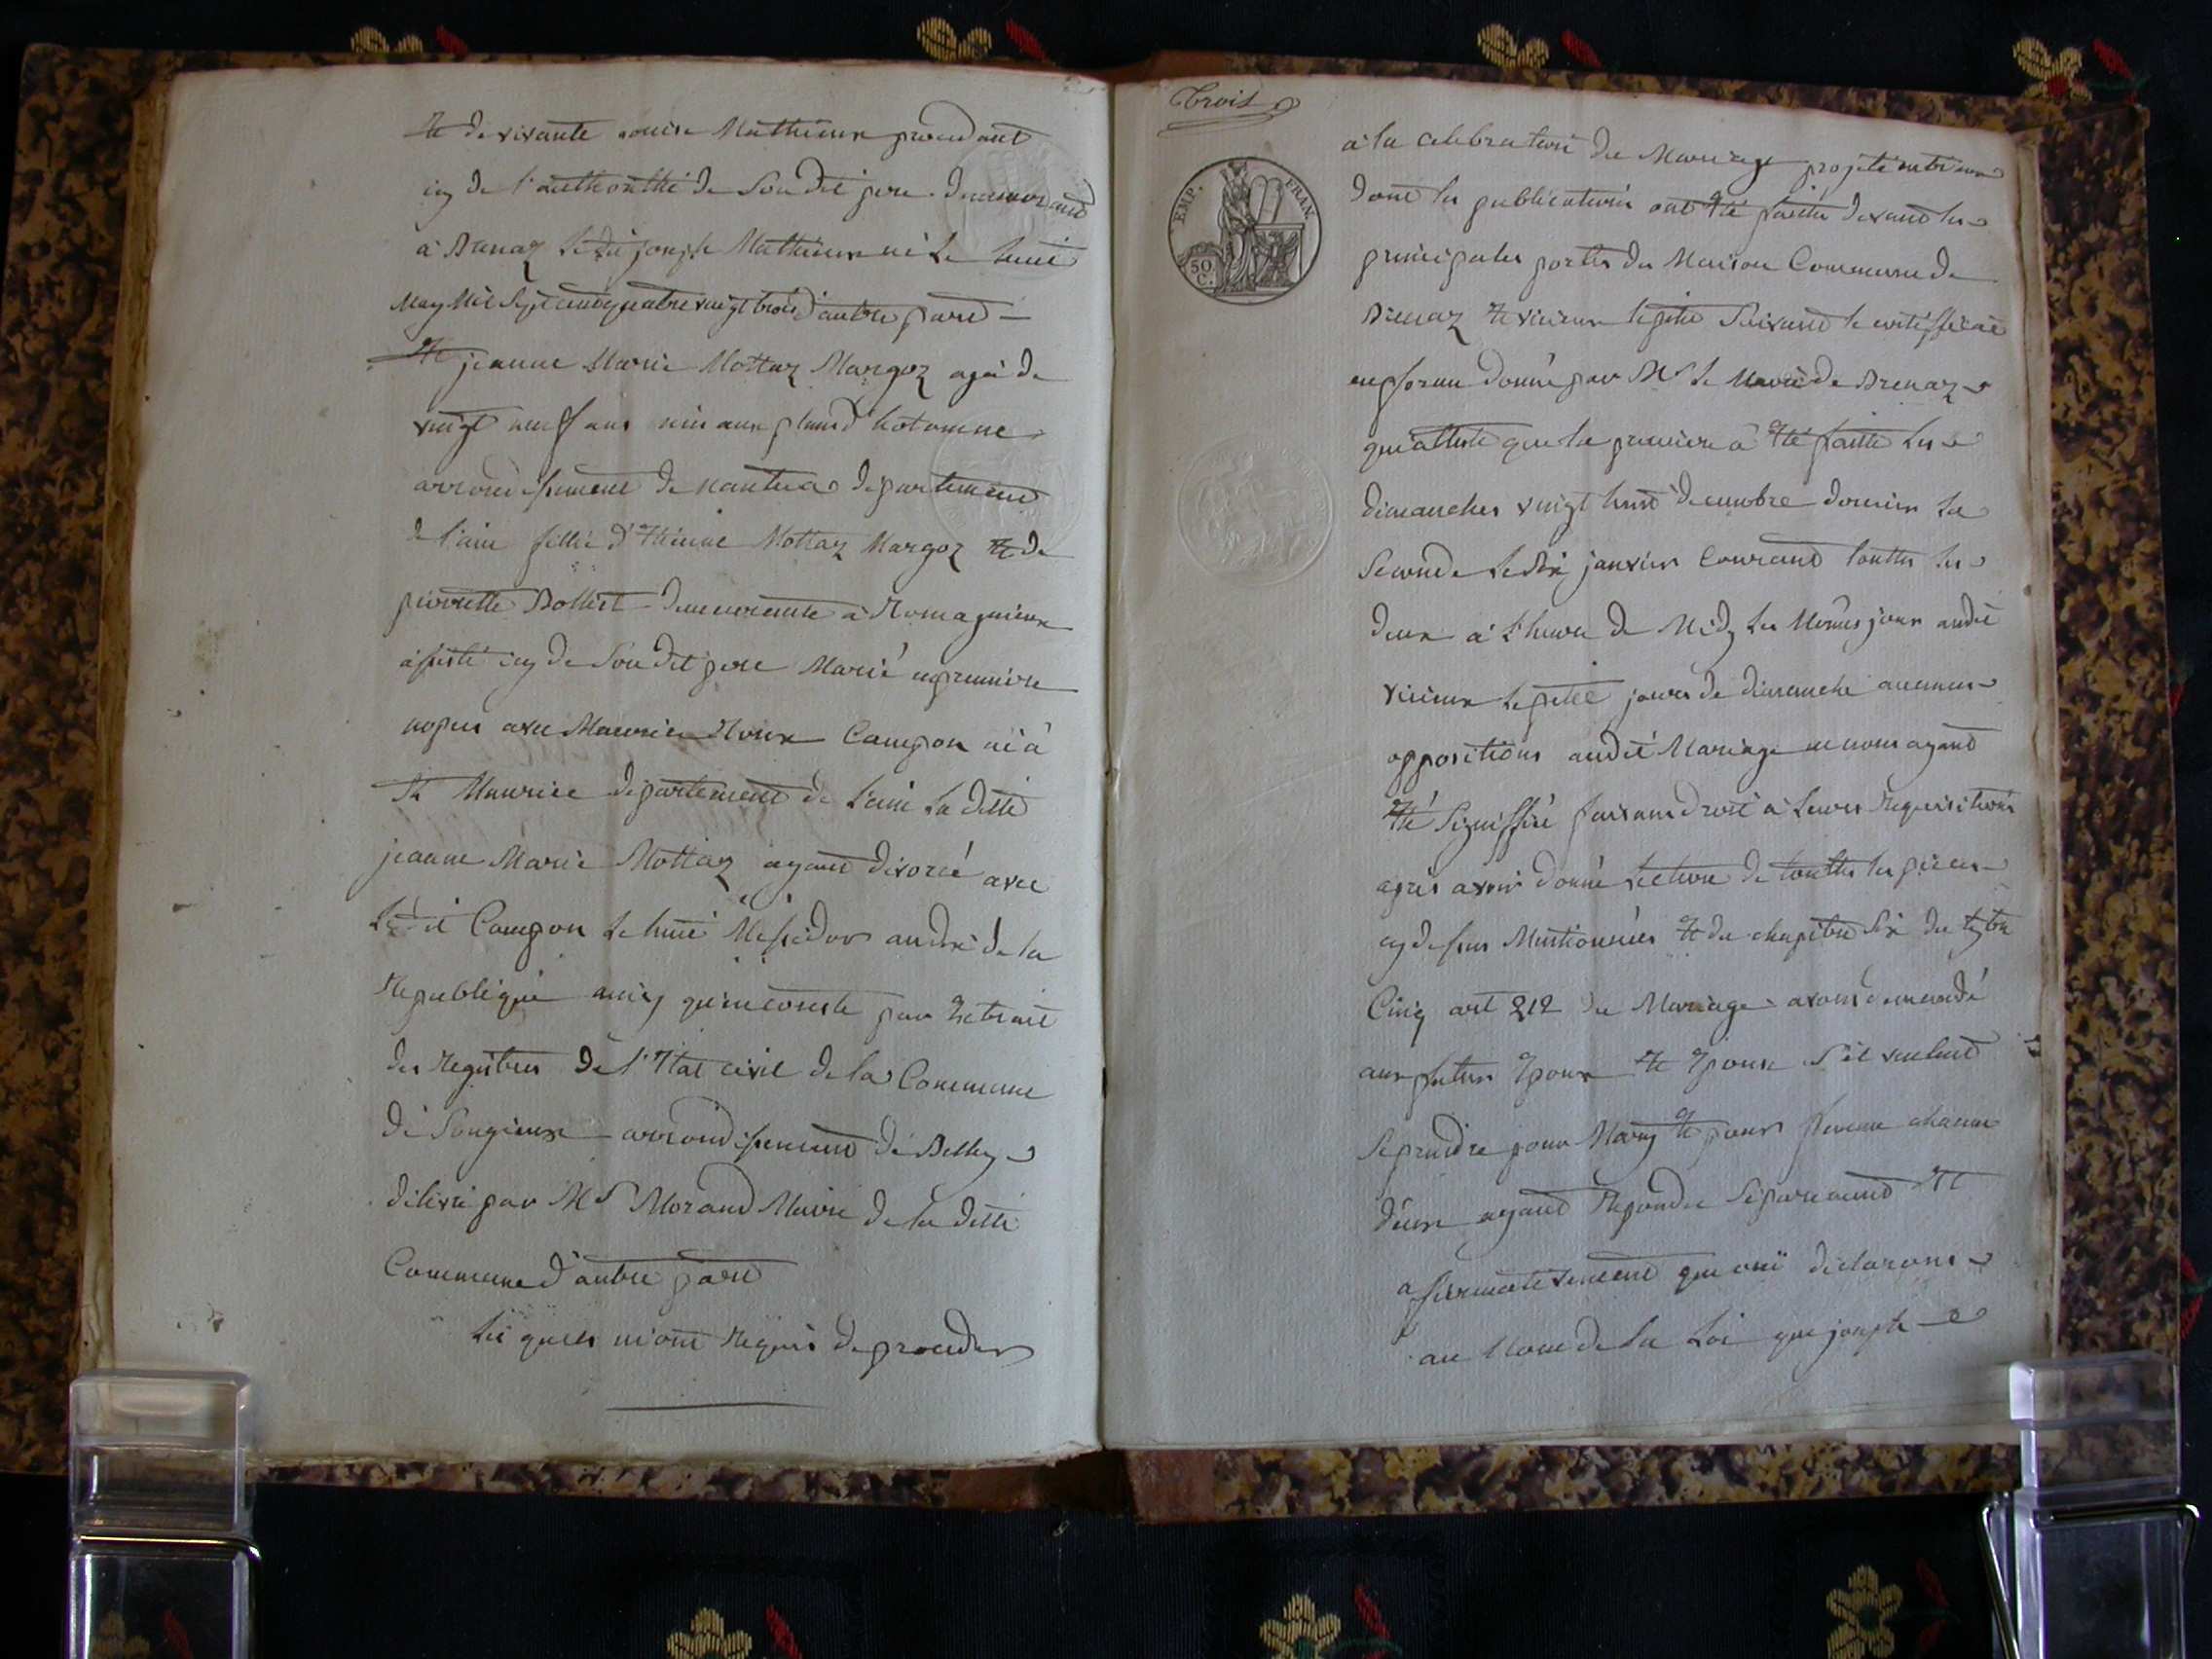 et de vivante Louise Mathieux procedant
icy de l'authorithé de Son dit pere demeurant
à Brenaz Le dit joseph Mathieux né Le huit
May Mil Sept cent quatre vingt trois d'autre part
Et jeanne Marie Mottaz Margoz agée de
vingt neuf ans née aux plans d'hotonne
arrondissement de nantua departement
de l'ain fillie d'Etienne Mottaz Margoz et de
pierrette Bolliet demeurante à Romagnieux
assisté icy de Son dit pere Marié en premiere
nopces avec Maurice Roux Campon né à
St Maurice departement de L'ain La ditte
jeanne Marie Mottaz ayant divorcé avec
Le dit Campon Le huit Messidor an dix de la
Republique ainsy qu'il conste par Extrait
des Registres de l'Etat civil de la Commune
de Songieux arrondissement de Belley
délivré par Mr Morand Maire de la ditte
Commune d'autre part
Les quels m'ont Requis de proceder
Trois
EMP. FRAN.
50 C.
à la celebration du Mariage projeté entr'eux
dont les publications ont été faittes devant les
principales portes des Maison Commune de
Brenaz et vieux lepetit Suivant le certifficat
en forme donné par Mr Le Maire de Brenaz
qui atteste que la premiere à été faitte Les
dimanches vingt huit decembre dernier La
Seconde Le Six janvier Courant touttes les
deux à L'heure de Midy Les Mêmes jour audit
vieux lepetit jours de dimanche aucunes
oppositions audit Mariage ne nous ayant
été Signiffié faisant droit à Leurs Requisitions
après avoir donné Lecture de touttes les pieces
cy dessus Mentionnées et du chapitre Six du tytre
Cinq art 212 du Mariage avons demandé
aux futurs Epoux et Epouse S'il veulent
Se prendre pour Mary et pour femme chacun
d'eux ayant Repondu Séparement et
affirmativement que ouï déclarons
au Nom de la Loi que joseph